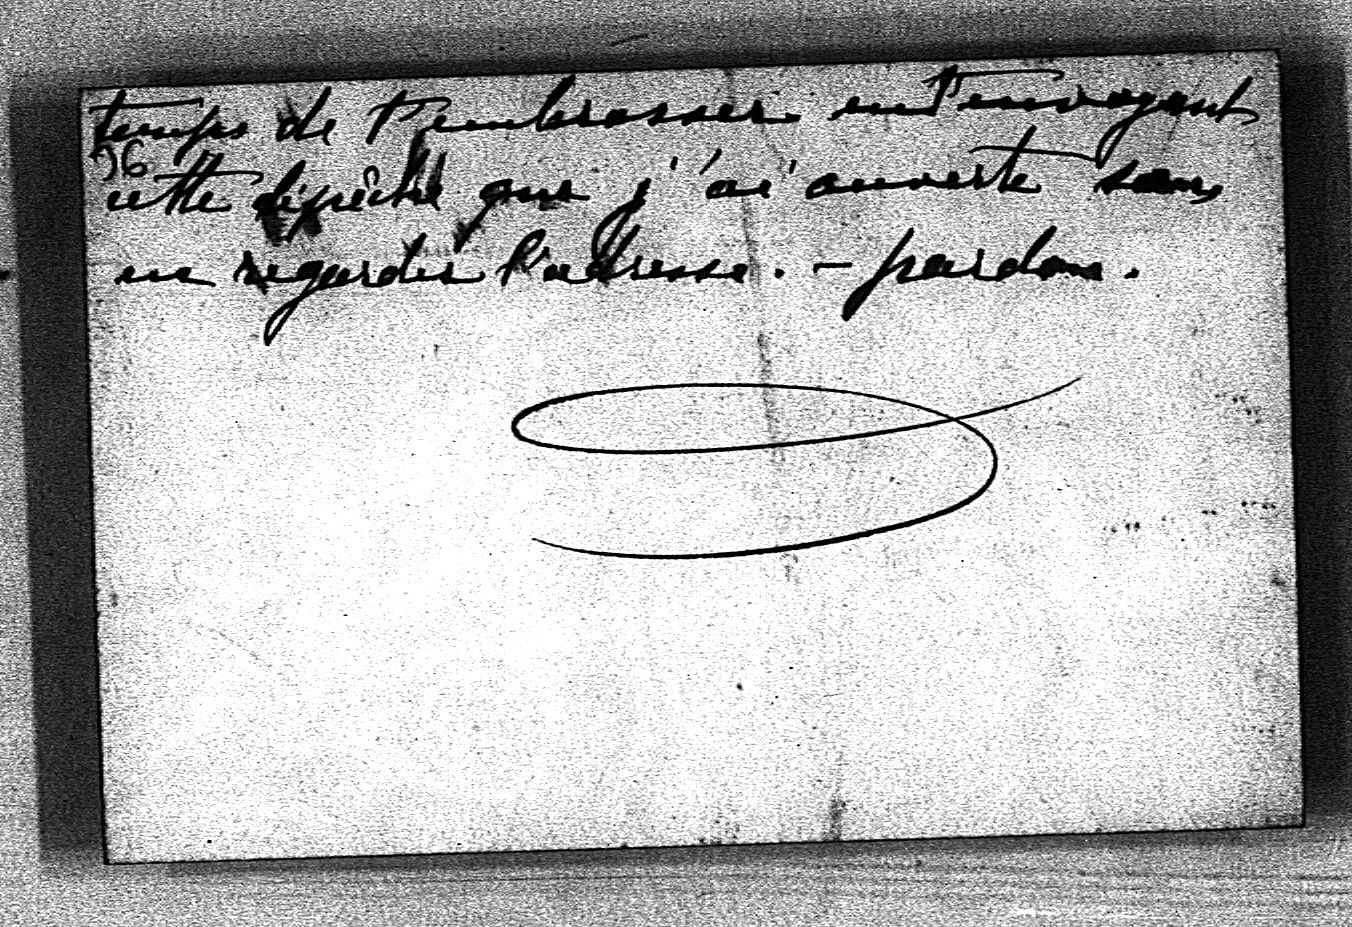 temps de t'embrasser en t'envoyant
96
cette dépêche que j'ai ouverte sans
en regarder l'adresse. – pardon.